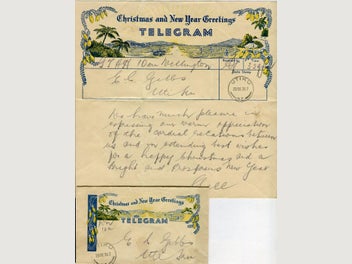 Christmas and New Year Greetings
TELEGRAM
Wellington
E C Gibbs
We have much pleasure in
expressing our warm appreciation
of the cordial relations between
us and in extending best wishes
for a happy Christmas and a
bright and Prosperous New Year
Christmas and New Year Greetings
TELEGRAM
E C Gibbs